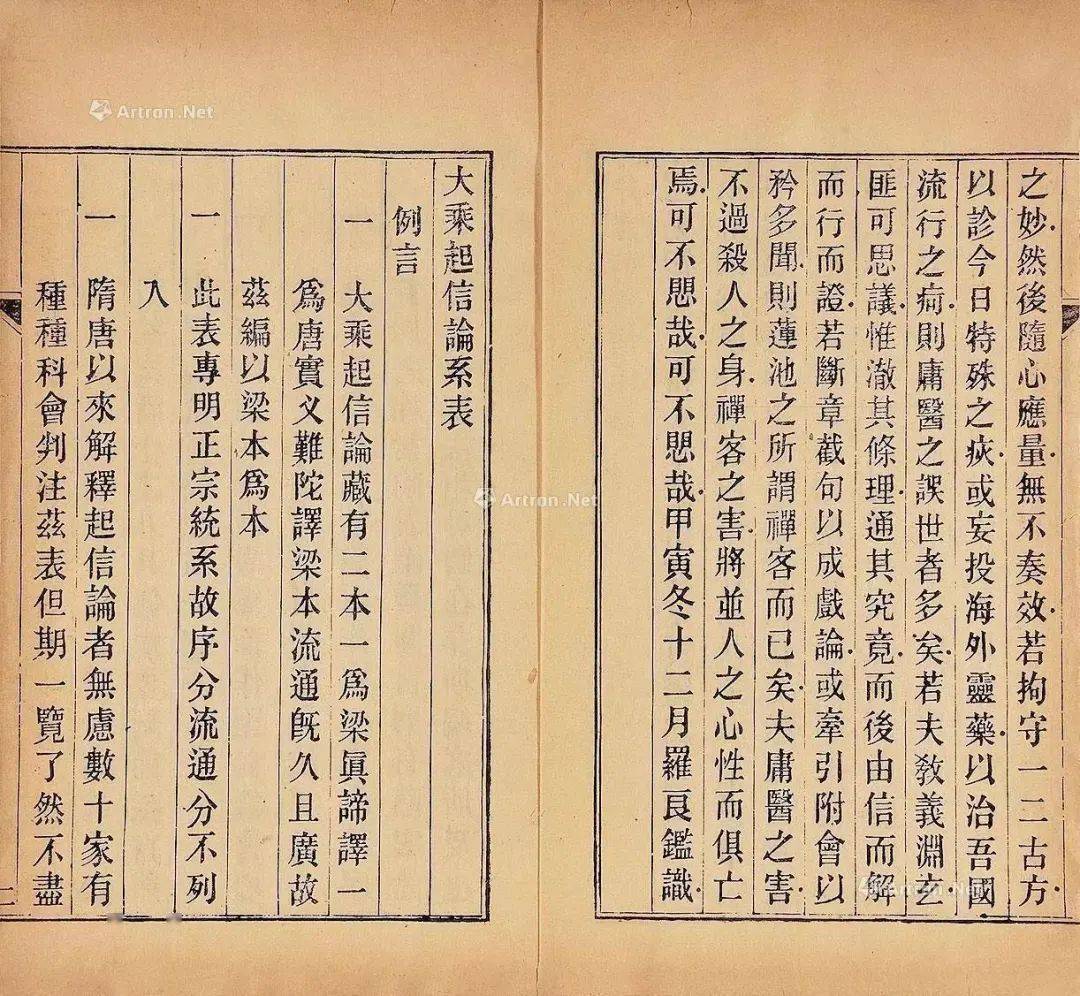 之妙然後隨心應量無不奏效若拘守一二古方
以診今日特殊之疢或妄投海外靈藥以治吾國
流行之疴則庸醫之誤世者多矣若夫敎義淵玄
匪可思議惟澈其條理通其究竟而後由信而解
而行而證若斷章截句以成戲論或牽引附會以
矜多聞則蓮池之所謂禪客而已矣夫庸醫之害
不過殺人之身禪客之害將並人之心性而俱亡
焉可不愳哉可不愳哉甲寅冬十二月羅良鑑識
大乘起信論系表
例言
一 大乘起信論藏有二本一爲梁眞諦譯一
爲唐實叉難陀譯梁本流通旣久且廣故
茲編以梁本爲本
一 此表專明正宗統系故序分流通分不列
入
一 隋唐以來解釋起信論者無慮數十家有
種種科會判注茲表但期一覽了然不盡
一
Artron.Net
Artron.Net
Artron.Net